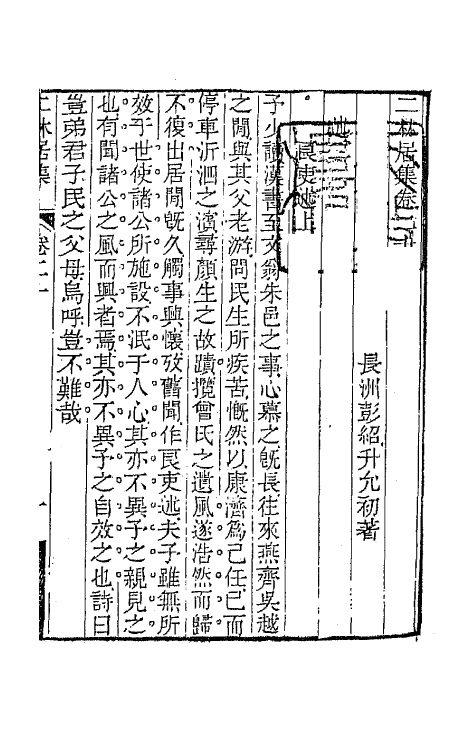 二林居集卷二十
長洲彭紹升允初著
述
良吏述上
予少讀漢書至文翁朱邑之事心慕之旣長往來燕齊吳越
之閒與其父老游問民生所疾苦慨然以康濟爲己任已而
停車沂泗之濱尋顏生之故蹟攬曾氏之遺風遂浩然而歸
不復出居閒旣久觸事興懷攷舊聞作良吏述夫予雖無所
效于世使諸公所施設不泯于人心其亦不異予之親見之
也有聞諸公之風而興者焉其亦不異予之自效之也詩曰
豈弟君子民之父母烏呼豈不難哉
二林居集
卷二十
一